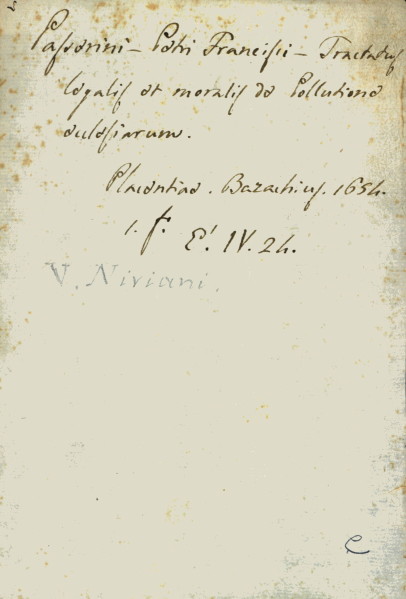 Passerini - Petri Francisci - Tractatus
legalis et moralis de Pollutione
eclesiarum.
Placentiae. Bazachius. 1654.
1. f. E! IV. 24.
V. Niviani.
e